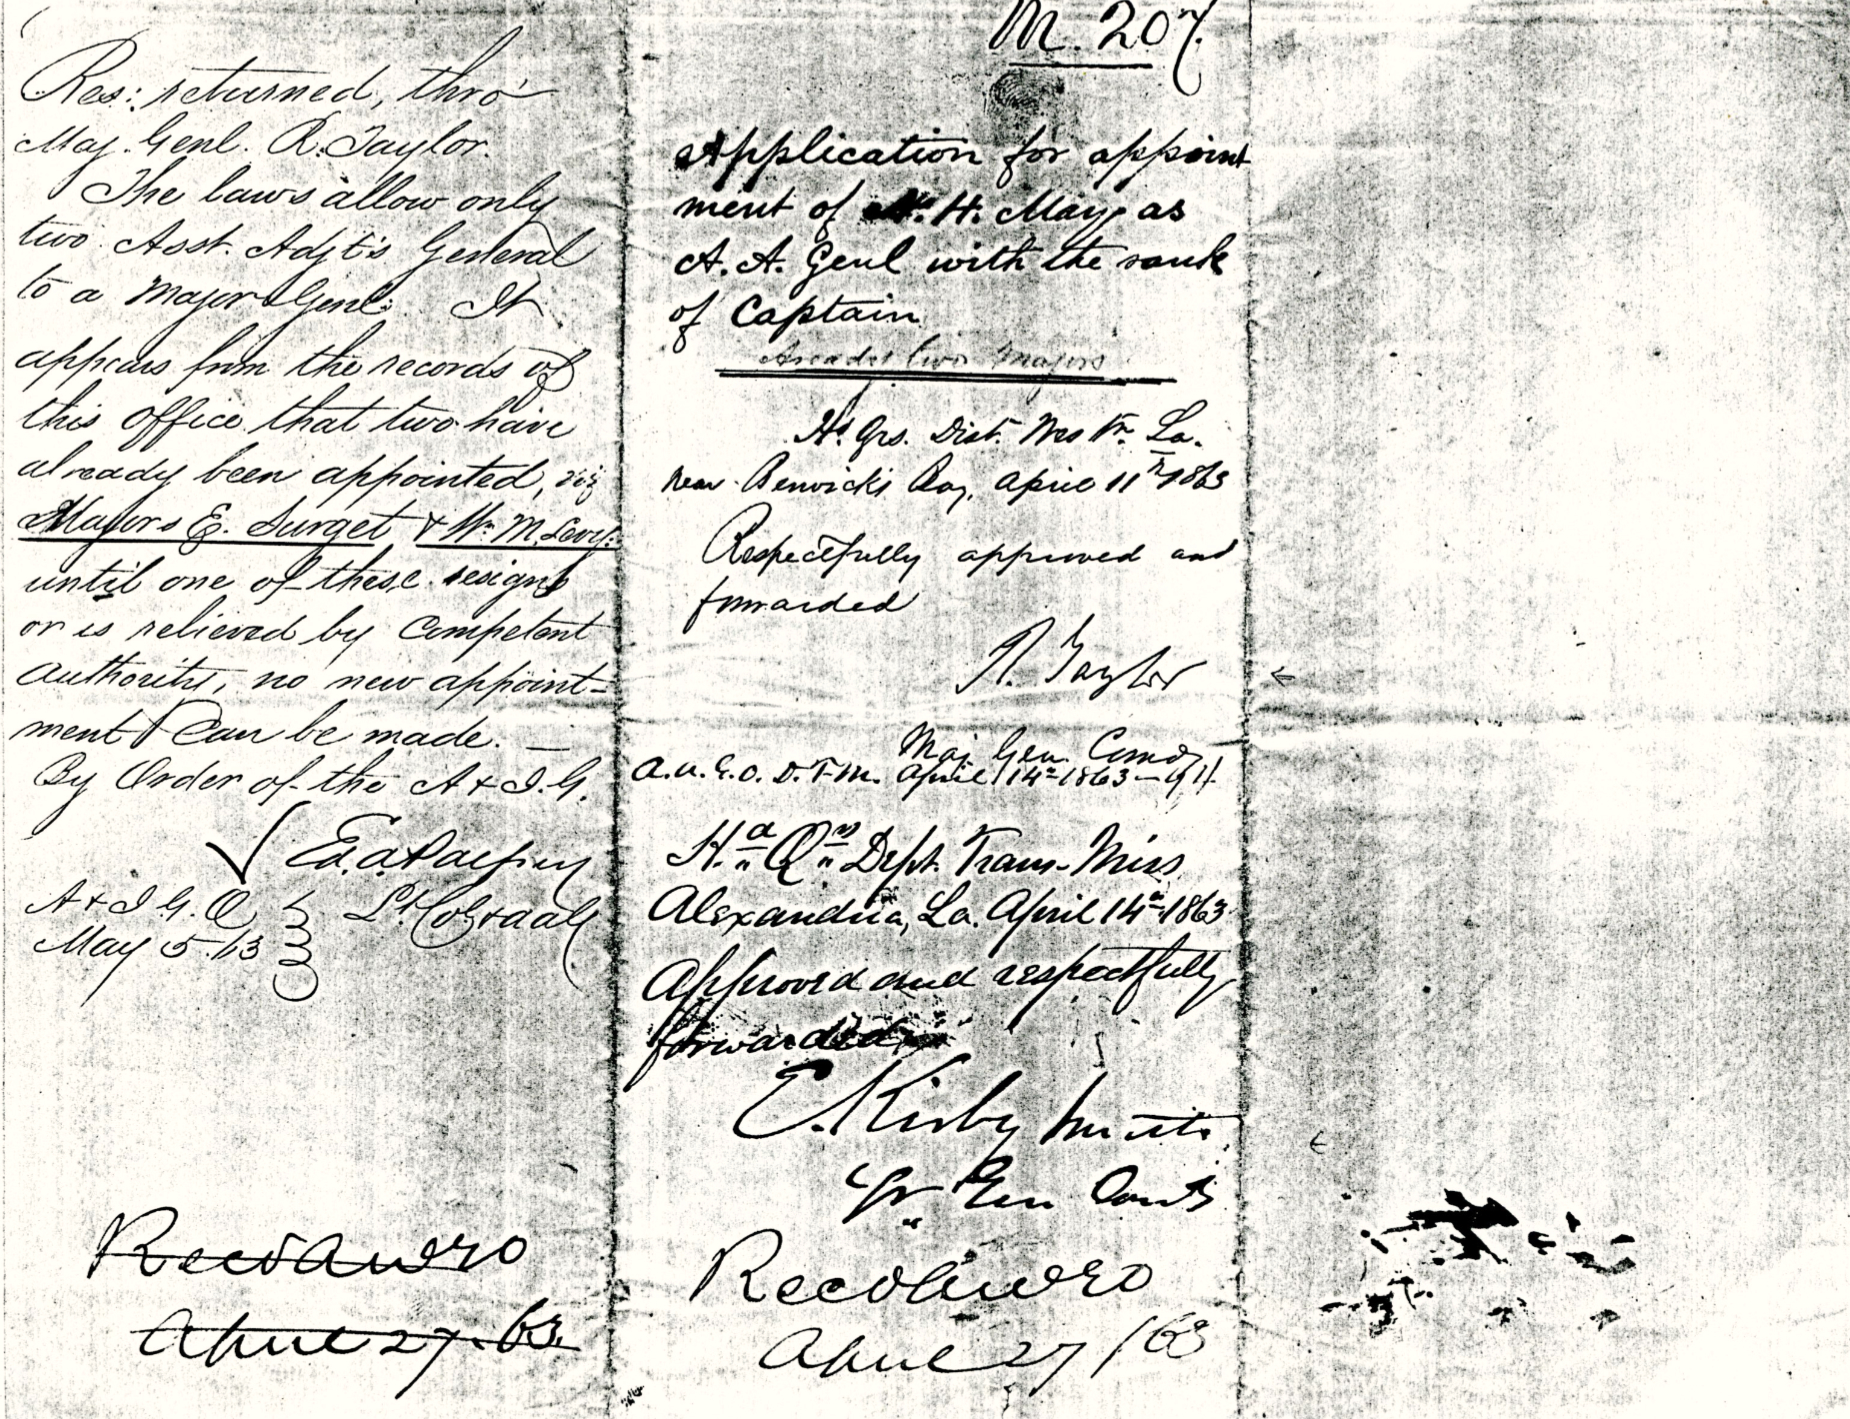 Res: returned, thro'
Maj. Genl. R. Taylor.
The laws allow only
two Asst. Adjt's General
to a Major Genl: It
appears from the records of
this office that two have
already been appointed, viz
Majors E. Surget & Wm. M. Levy.
until one of these resigns
or is relieved by competent
authority, no new appoint-
ment can be made. —
By Order of the A & I. G.
Lt Col & aag
A & I G. O
May 5. 63
Recd A & I G O
April 27. 63.
M. 207.
Application for appoint
ment of H. May as
A. A. Genl with the rank
of Captain
two Majors
Hd. Qrs. Dist. Westn. La.
near Berwick's Bay, April 11th 1863
Respectfully approved and
forwarded
R. Taylor
Maj. Gen. Comdg
April 14th 1863
Hd Qrs Dept. Trans-Miss
Alexandria, La. April 14th 1863
Approved and respectfully
forwarded
E. Kirby Smith
Lt Gen Comdg
Recd A & I G O
April 27/63